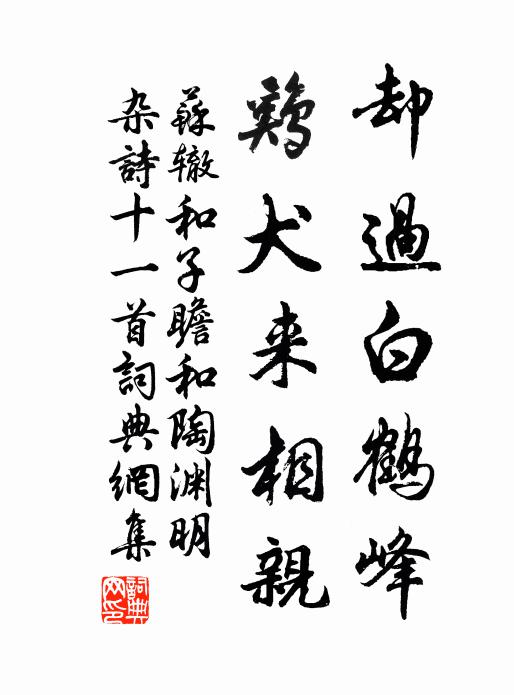 却過白鶴峰
鷄犬来相親
蘇辙和子瞻和陶渊明
杂詩十一首詞典網集
詞典网印